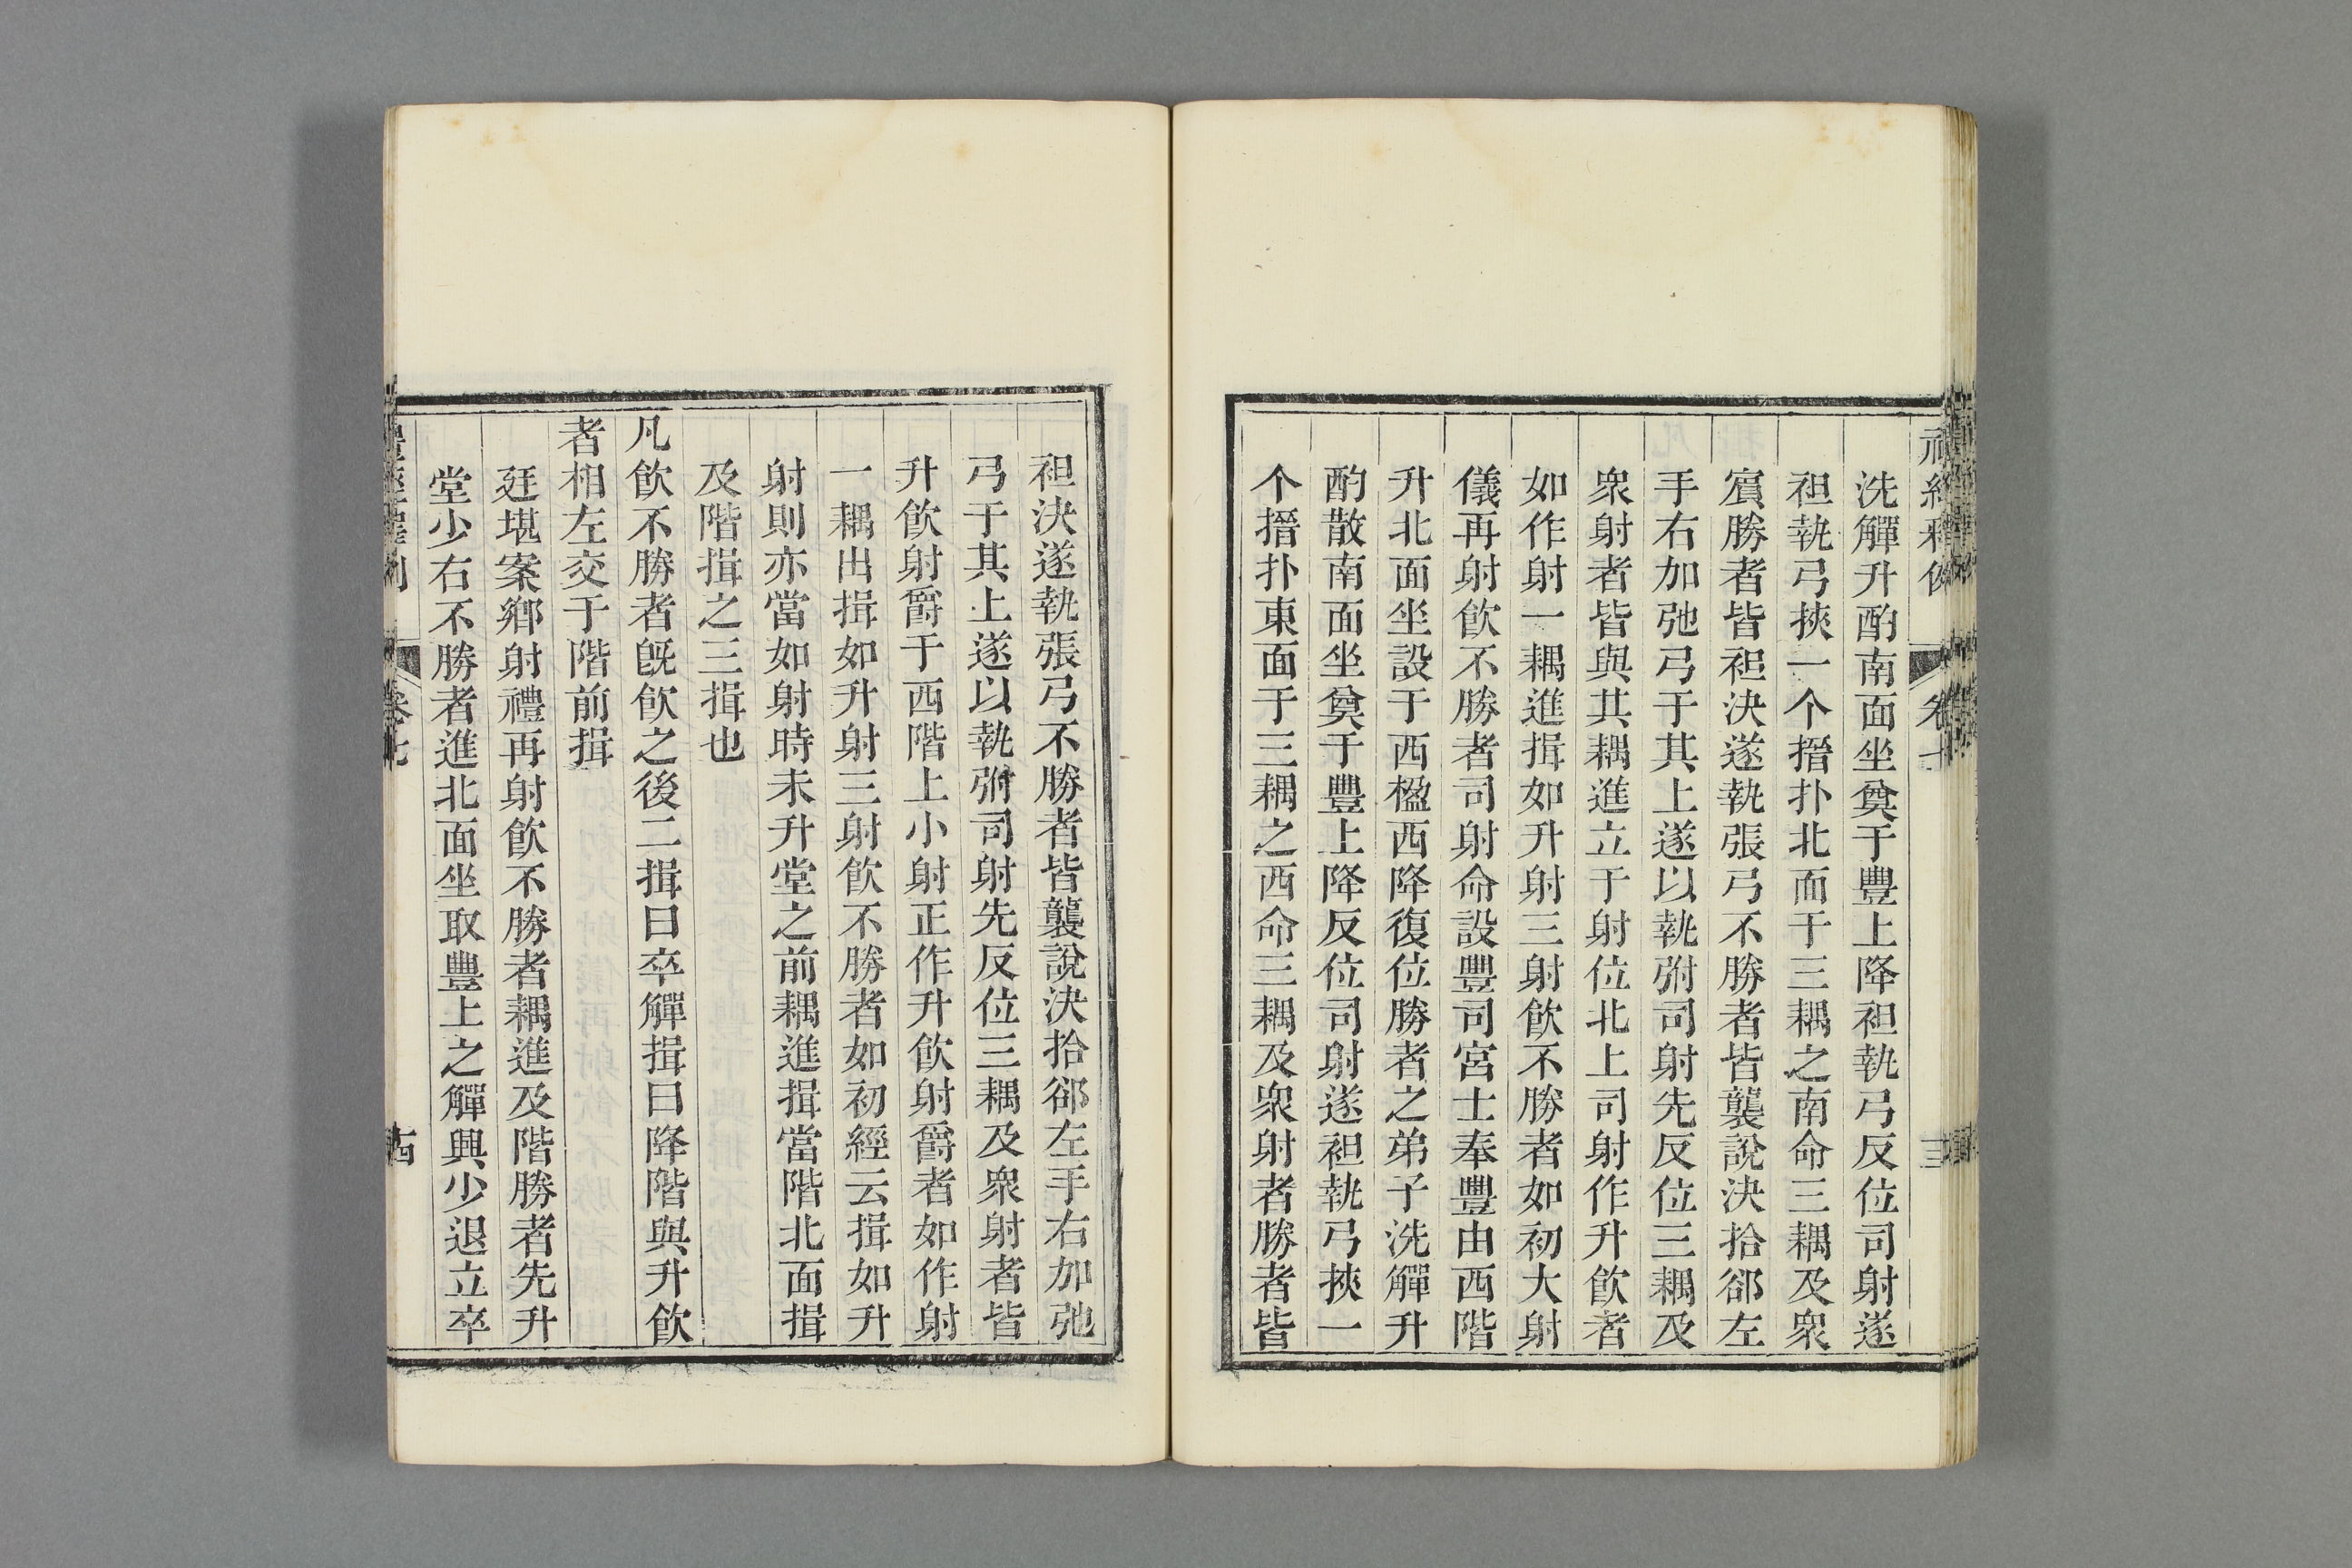 洗觶升酌南面坐奠于豐上降袒執弓反位司射遂
袒執弓挾一个搢扑北面于三耦之南命三耦及衆
賓勝者皆袒決遂執張弓不勝者皆襲說決拾郤左
手右加弛弓于其上遂以執弣司射先反位三耦及
衆射者皆與其耦進立于射位北上司射作升飲者
如作射一耦進揖如升射三射飲不勝者如初大射
儀再射飲不勝者司射命設豐司宮士奉豐由西階
升北面坐設于西楹西降復位勝者之弟子洗觶升
酌散南面坐奠于豐上降反位司射遂袒執弓挾一
个搢扑東面于三耦之西命三耦及衆射者勝者皆
袒決遂執張弓不勝者皆襲說決拾郤左手右加弛
弓于其上遂以執弣司射先反位三耦及衆射者皆
升飲射爵于西階上小射正作升飲射爵者如作射
一耦出揖如升射三射飲不勝者如初經云揖如升
射則亦當如射時未升堂之前耦進揖當階北面揖
及階揖之三揖也
凡飲不勝者旣飲之後二揖曰卒觶揖曰降階與升飲
者相左交于階前揖
廷堪案鄉射禮再射飲不勝者耦進及階勝者先升
堂少右不勝者進北面坐取豐上之觶興少退立卒
卷七